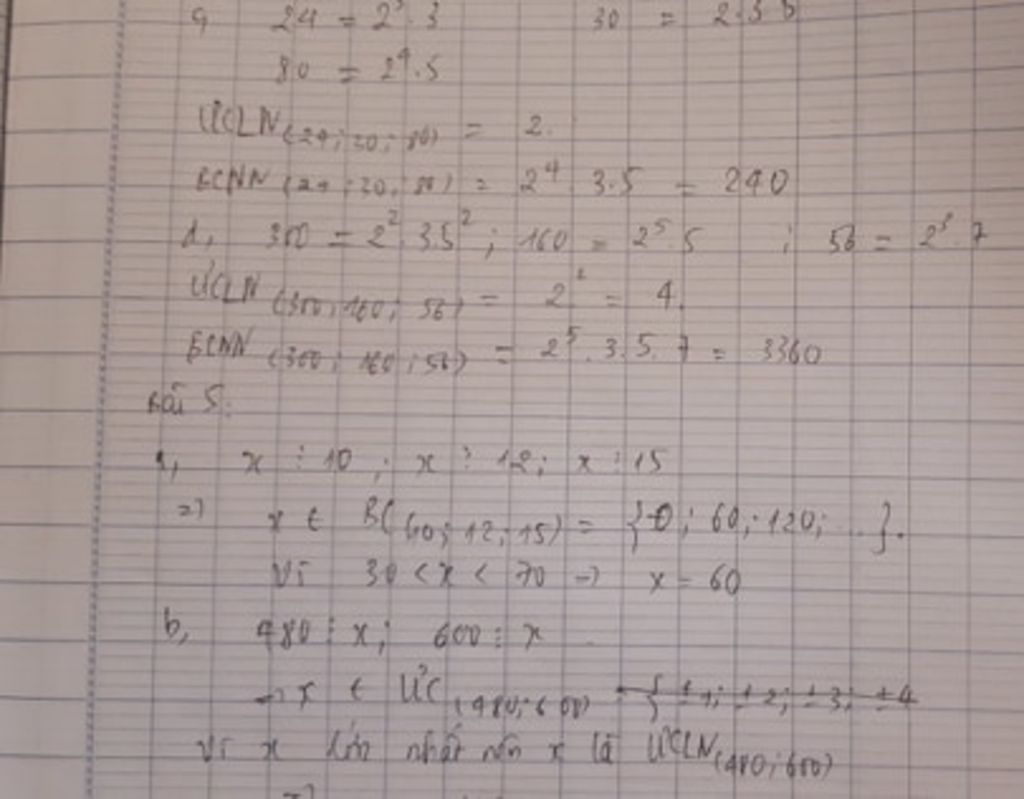 24 = 2³.3 30 = 2.3.5
80 = 2⁴.5
ƯCLN (24; 30; 80) = 2.
BCNN (24; 30; 80) = 2⁴ 3.5 = 240
d, 300 = 2².3.5² ; 160 = 2⁵.5 ; 56 = 2³.7
ƯCLN (300; 160; 56) = 2² = 4.
BCNN (300; 160; 56) = 2⁵.3.5.7 = 3360
Bài 5:
a, x ⋮ 10 ; x ⋮ 12; x ⋮ 15
=> x ∈ BC(10; 12; 15) = {0; 60; 120; ...}.
Vì 30 < x < 70 => x = 60
b, 480 ⋮ x; 600 ⋮ x
=> x ∈ ƯC (480; 600) = { ±1; ±2; ±3; ±4
Vì x lớn nhất nên x là ƯCLN (480; 600)
=>